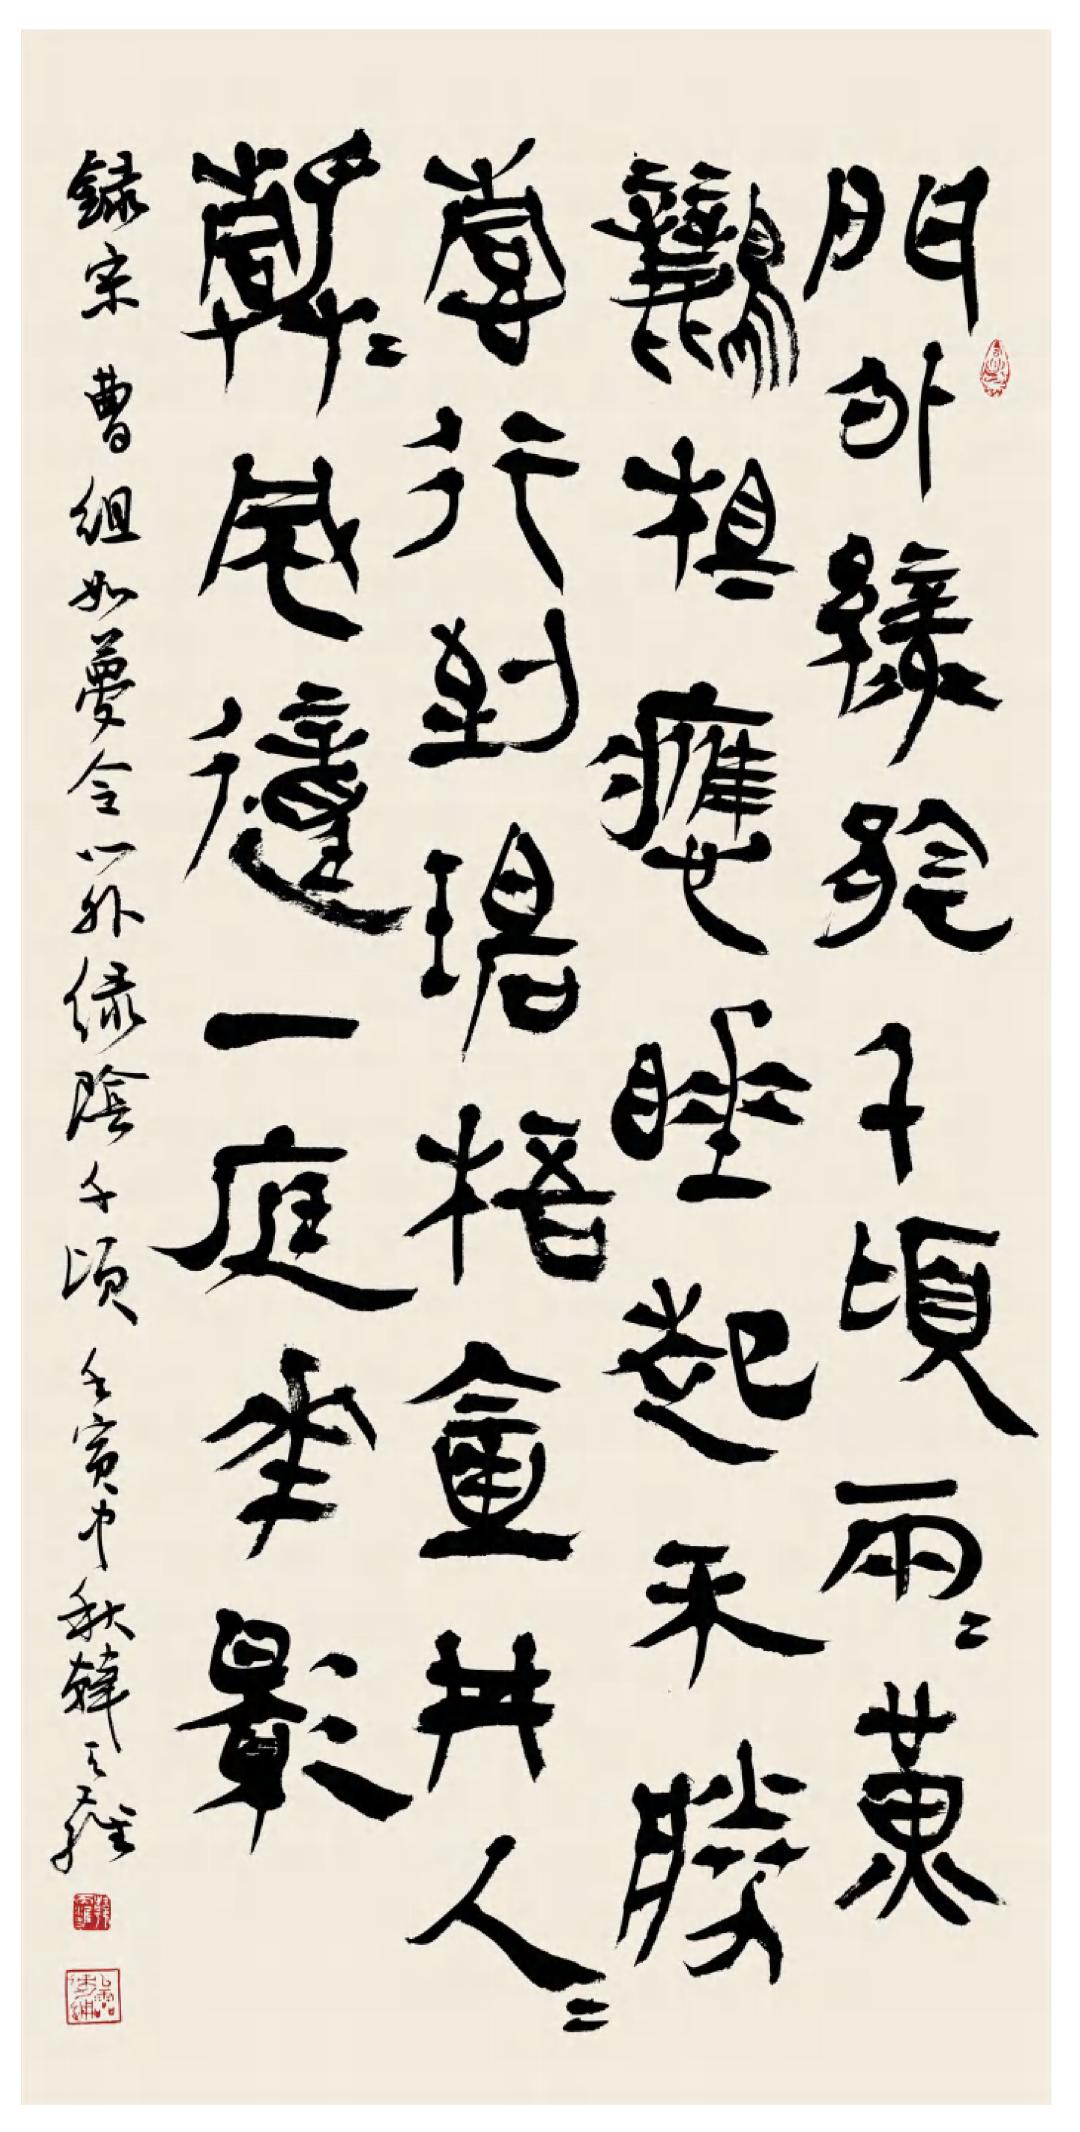 門外綠陰千頃兩〻黃
鸝相應睡起不勝
情行到碧梧金井人〻
靜〻風動一庭花影
錄宋曹組如夢令門外綠陰千頃壬寅中秋韓天雍